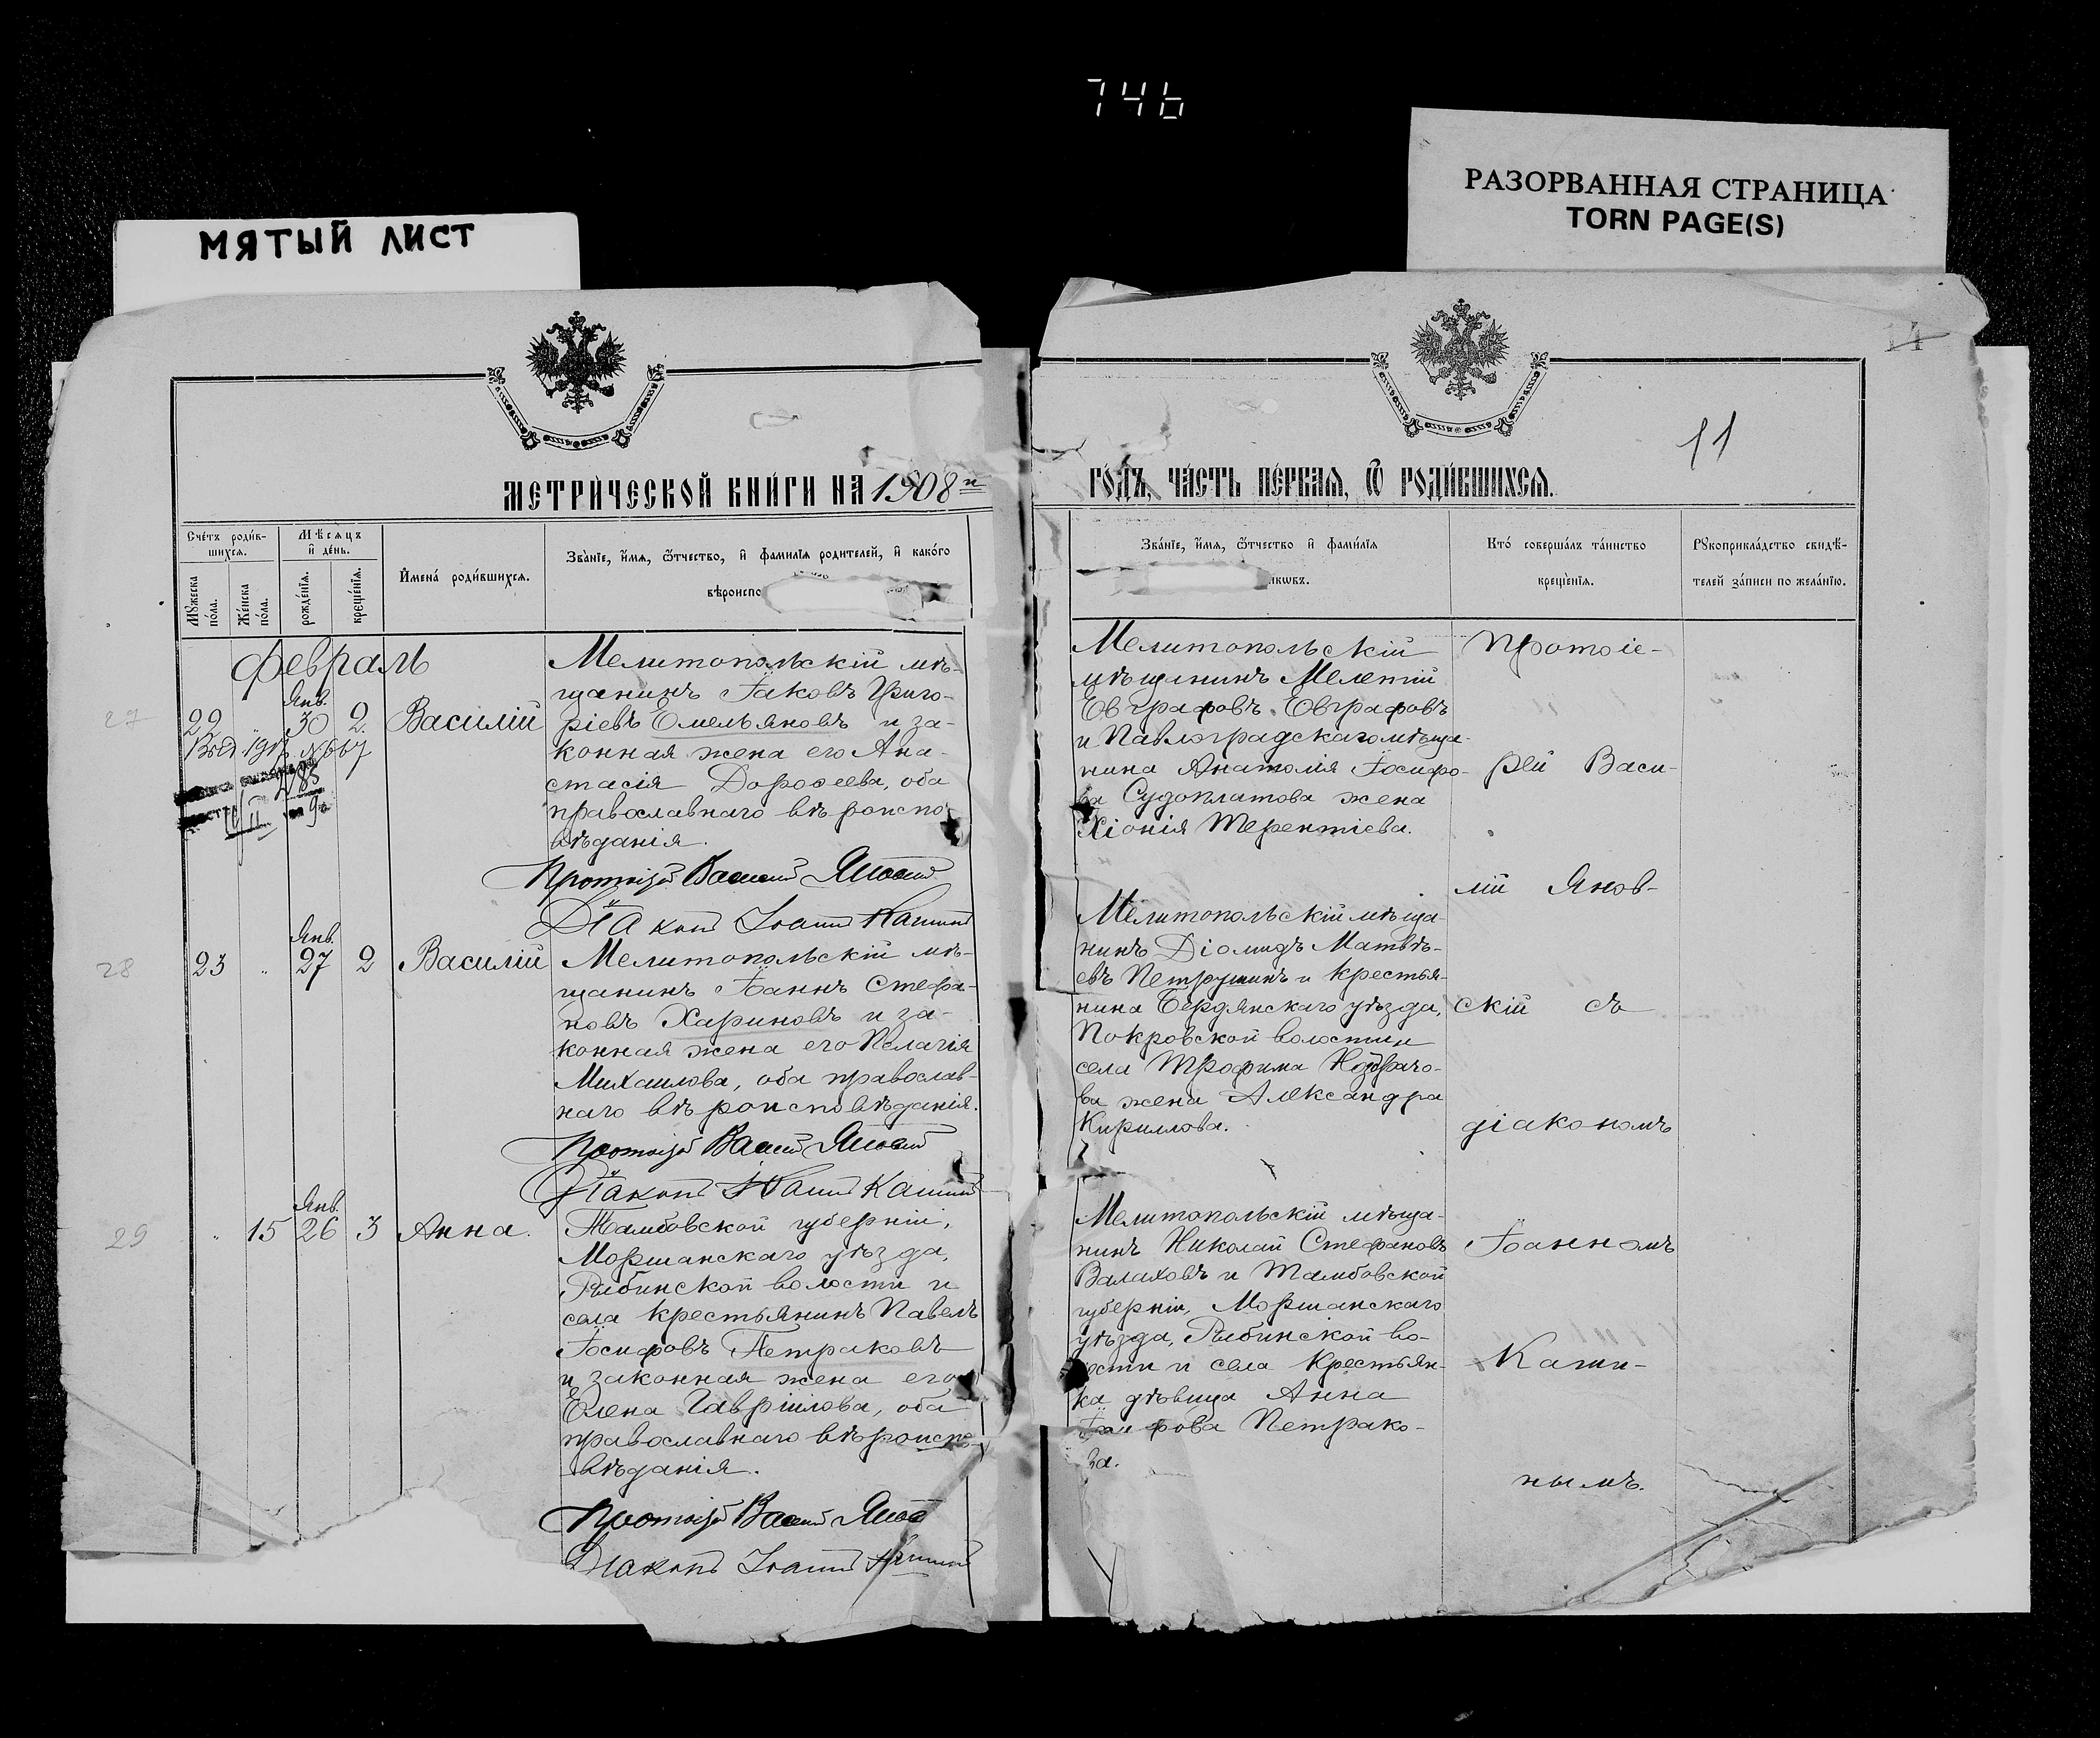 746
РАЗОРВАННАЯ СТРАНИЦА
TORN PAGE(S)
МЯТЫЙ ЛИСТ
14
11
МЕТРИ́ЧЕСКОЙ КНИ́ГИ НА 1908 й
ГО́ДЪ, ЧА́СТЬ ПЕ́РВАѦ, Ѽ РОДИ́ВШИХСѦ.
Сче́тъ роди́в-
шихсѧ.
Мѣ́сѧцъ
и҆ де́нь.
Мꙋ́жеска по́ла.
Же́нска по́ла.
рожде́нїѧ.
креще́нїѧ.
И҆мена̀ роди́вшихсѧ.
Зва́нїе, и҆́мѧ, ѻ҆́тчество, и҆ фами́лїѧ роди́телей, и҆ како́го
вѣроиспо
Зва́нїе, и҆́мѧ, ѻ҆́тчество и҆ фами́лїѧ
никѡвъ.
Кто̀ соверша́лъ та́инство
креще́нїѧ.
Рꙋкоприкла́дство свидѣ́-
телей за́писи по жела́нїю.
Февраль
27
22 " Янв. 30 2 Василій
Мелитопольскій мѣ-
щанинъ Іаковъ Григо-
ріевъ Емельяновъ и за-
конная жена его Ана-
стасія Дороѳеева, оба
православнаго вѣроиспо
вѣданія.
Протоіерей Василій Яновскій
Діаконъ Іоаннъ Кашинъ
Мелитопольскій
мѣщанинъ Мелетій
Евграфовъ Евграфовъ
и Павлоградскаго мѣща-
нина Анатолія Іосифо-
ва Судоплатова жена
Хіонія Терентіева.
28
23 " Янв. 27 2 Василій
Мелитопольскій мѣ-
щанинъ Іоаннъ Стефа-
новъ Хариновъ и за-
конная жена его Пелагія
Михаилова, оба православ-
наго вѣроисповѣданія.
Протоіерей Василій Яновскій
Діаконъ Іоаннъ Кашинъ
Мелитопольскій мѣща-
нинъ Діомидъ Матвѣ-
евъ Петрушинъ и крестья-
нина Бердянскаго уѣзда,
Покровской волости и
села Трофима
ва жена Александра
Кириллова.
29
" 15 Янв. 26 3 Анна.
Тамбовской губерніи,
Моршанскаго уѣзда,
Рыбинской волости и
села крестьянинъ Павелъ
Іосифовъ Петраковъ
и законная жена его
Елена Гавріилова, оба
православнаго вѣроиспо-
вѣданія.
Протоіерей Василій Яновскій
Діаконъ Іоаннъ Кашинъ
Мелитопольскій мѣща-
нинъ Николай Стефановъ
Валаховъ и Тамбовской
губерніи, Моршанскаго
уѣзда, Рыбинской во-
лости и села крестьян-
ка дѣвица Анна
Іосифова Петрако-
ва.
Протоіе-
рей Васи-
лій Янов-
скій съ
діакономъ
Іоанномъ
Каши-
нымъ.